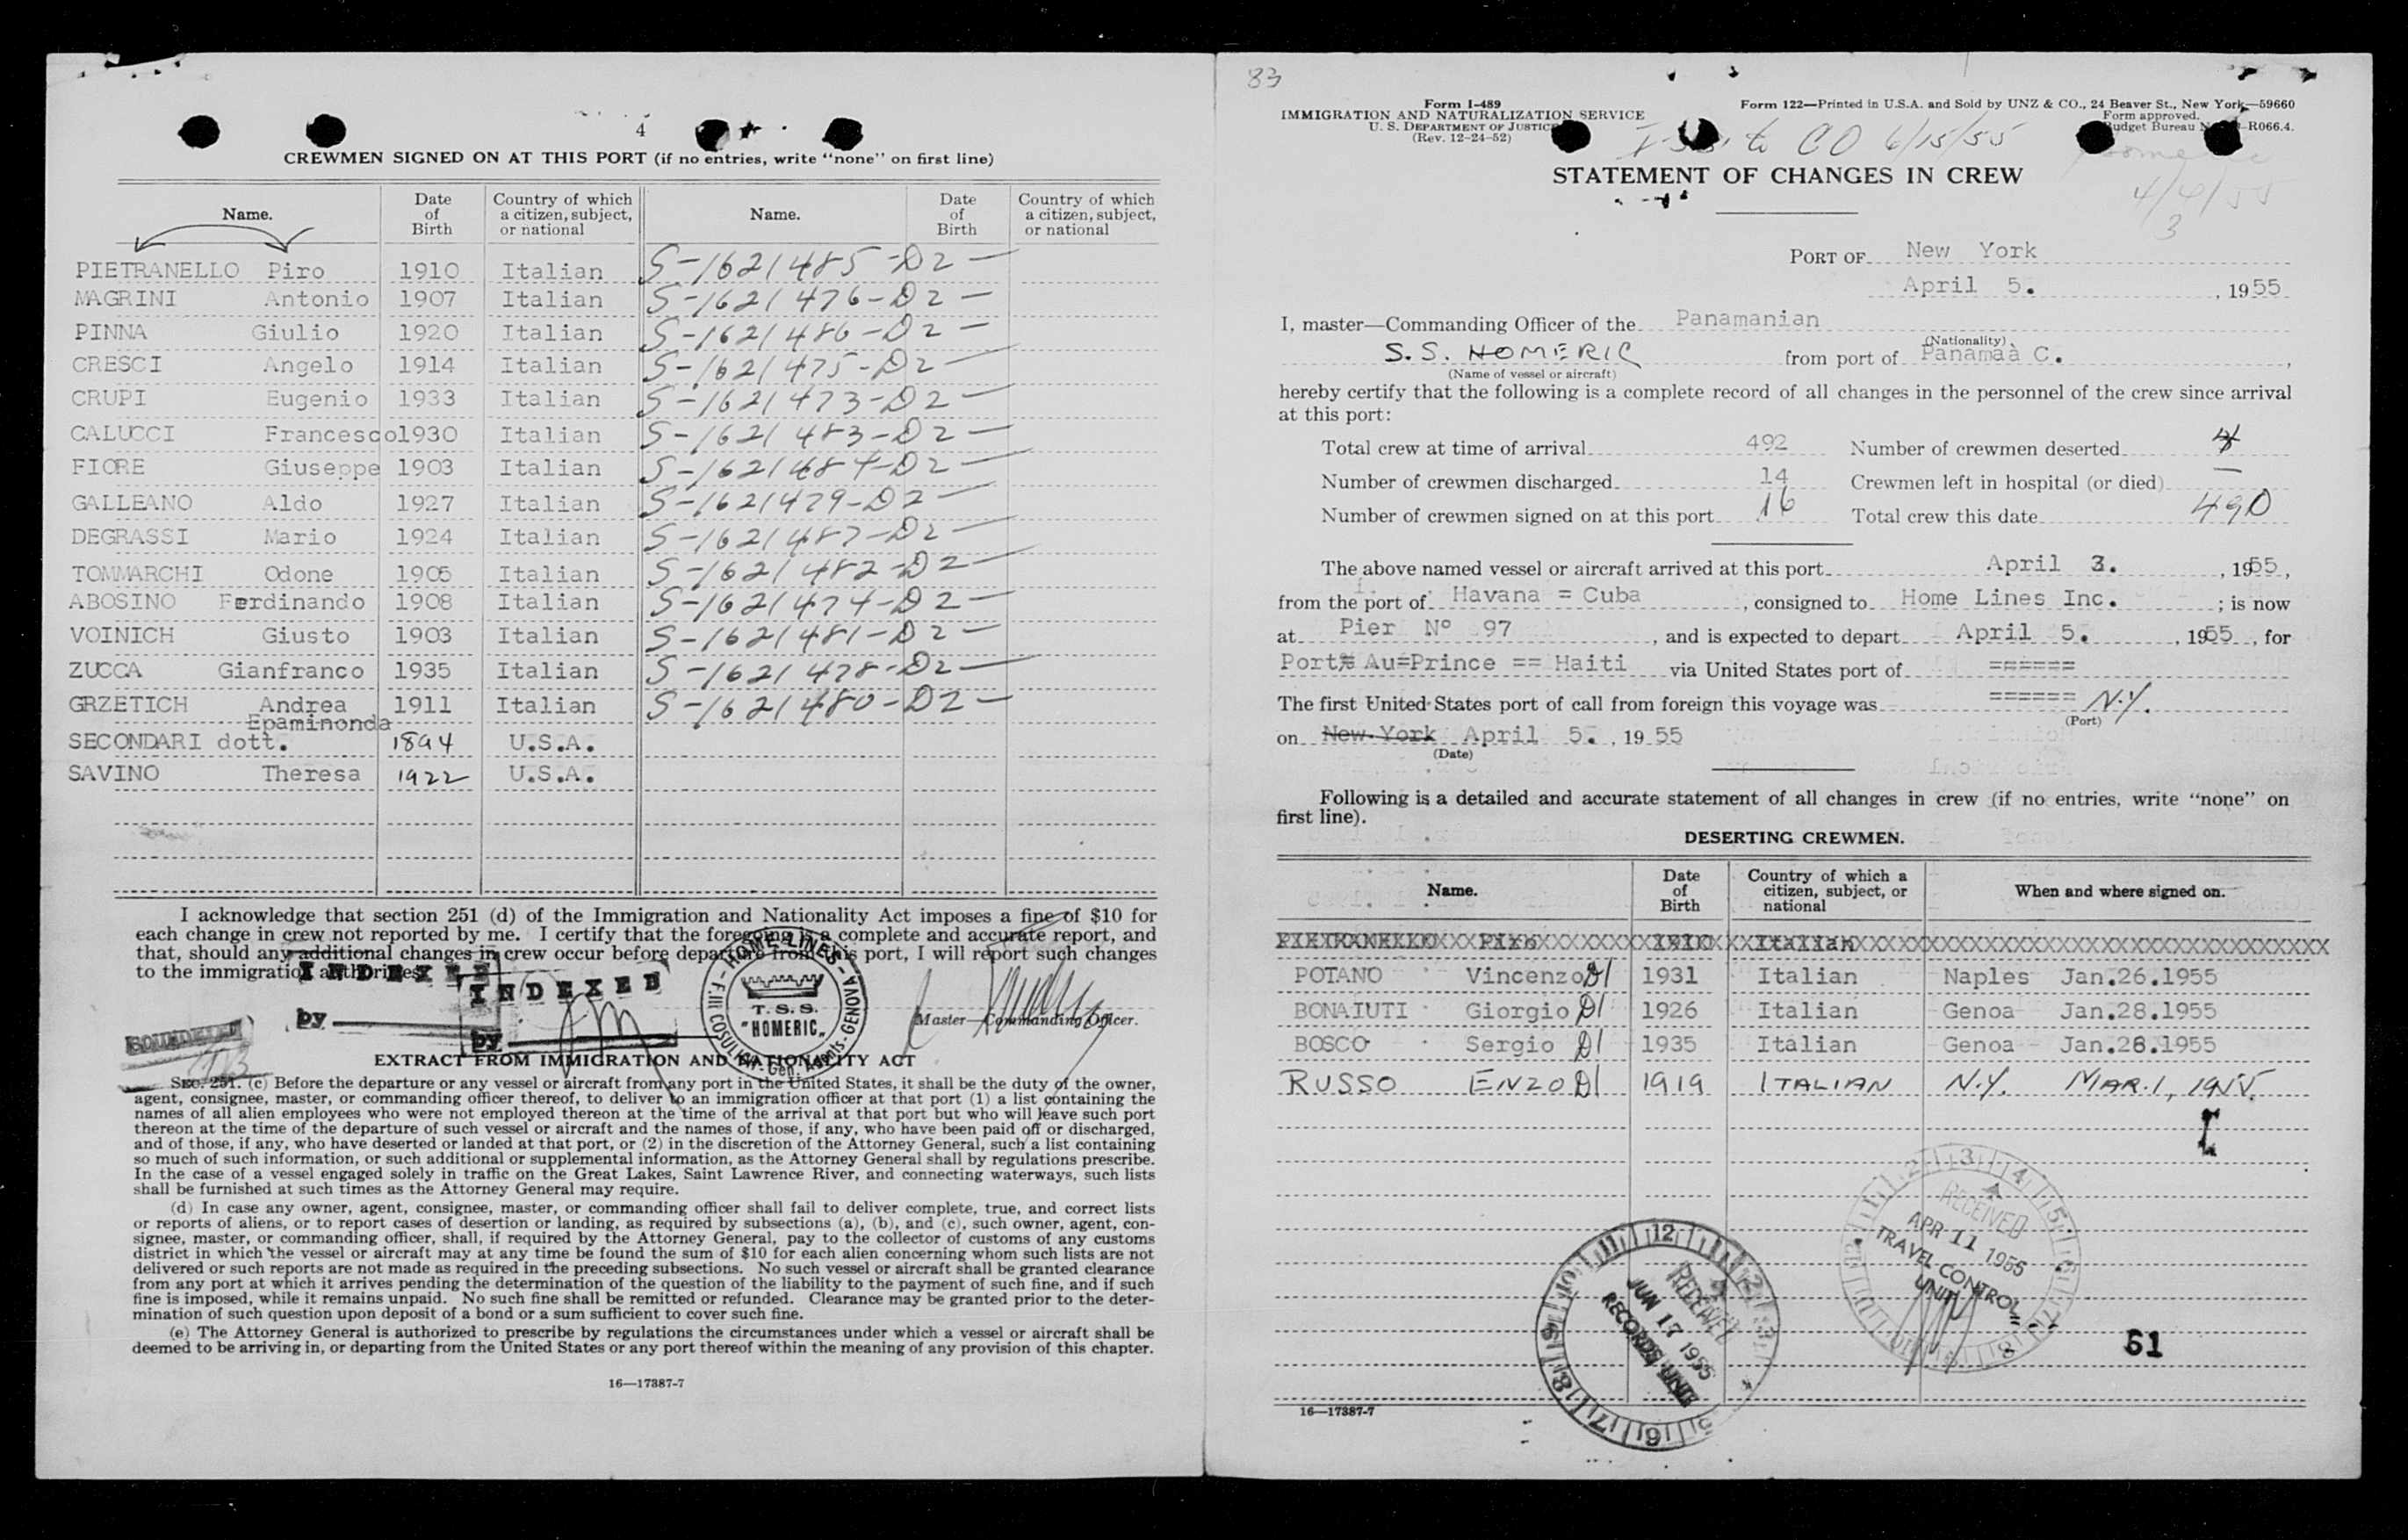 4
CREWMEN SIGNED ON AT THIS PORT (if no entries, write "none" on first line)
Name. Date of Birth Country of which a citizen, subject, or national Name. Date of Birth Country of which a citizen, subject, or national
PIETRANELLO Piro 1910 Italian S-1621485-D2-
MAGRINI Antonio 1907 Italian S-1621476-D2-
PINNA Giulio 1920 Italian S-1621486-D2-
CRESCI Angelo 1914 Italian S-1621475-D2-
CRUPI Eugenio 1933 Italian S-1621473-D2-
CALUCCI Francesco 1930 Italian S-1621483-D2-
FIORE Giuseppe 1903 Italian S-1621484-D2-
GALLEANO Aldo 1927 Italian S-1621479-D2-
DEGRASSI Mario 1924 Italian S-1621487-D2-
TOMMARCHI Odone 1905 Italian S-1621482-D2-
ABOSINO Ferdinando 1908 Italian S-1621474-D2-
VOINICH Giusto 1903 Italian S-1621481-D2-
ZUCCA Gianfranco 1935 Italian S-1621478-D2-
GRZETICH Andrea 1911 Italian S-1621480-D2-
Epaminonda
SECONDARI dott. 1894 U.S.A.
SAVINO Theresa 1922 U.S.A.
I acknowledge that section 251 (d) of the Immigration and Nationality Act imposes a fine of $10 for
each change in crew not reported by me. I certify that the foregoing is a complete and accurate report, and
that, should any additional changes in crew occur before departure from this port, I will report such changes
to the immigration authorities.
INDEXED
INDEXED
by
by
HOME LINES - GENOVA
F.lli COSULICH - Gen. Agents
T. S. S.
"HOMERIC"
Master—Commanding Officer.
EXTRACT FROM IMMIGRATION AND NATIONALITY ACT
SEC. 251. (c) Before the departure or any vessel or aircraft from any port in the United States, it shall be the duty of the owner,
agent, consignee, master, or commanding officer thereof, to deliver to an immigration officer at that port (1) a list containing the
names of all alien employees who were not employed thereon at the time of the arrival at that port but who will leave such port
thereon at the time of the departure of such vessel or aircraft and the names of those, if any, who have been paid off or discharged,
and of those, if any, who have deserted or landed at that port, or (2) in the discretion of the Attorney General, such a list containing
so much of such information, or such additional or supplemental information, as the Attorney General shall by regulations prescribe.
In the case of a vessel engaged solely in traffic on the Great Lakes, Saint Lawrence River, and connecting waterways, such lists
shall be furnished at such times as the Attorney General may require.
(d) In case any owner, agent, consignee, master, or commanding officer shall fail to deliver complete, true, and correct lists
or reports of aliens, or to report cases of desertion or landing, as required by subsections (a), (b), and (c), such owner, agent, con-
signee, master, or commanding officer, shall, if required by the Attorney General, pay to the collector of customs of any customs
district in which the vessel or aircraft may at any time be found the sum of $10 for each alien concerning whom such lists are not
delivered or such reports are not made as required in the preceding subsections. No such vessel or aircraft shall be granted clearance
from any port at which it arrives pending the determination of the question of the liability to the payment of such fine, and if such
fine is imposed, while it remains unpaid. No such fine shall be remitted or refunded. Clearance may be granted prior to the deter-
mination of such question upon deposit of a bond or a sum sufficient to cover such fine.
(e) The Attorney General is authorized to prescribe by regulations the circumstances under which a vessel or aircraft shall be
deemed to be arriving in, or departing from the United States or any port thereof within the meaning of any provision of this chapter.
16—17387-7
83
Form I-489
IMMIGRATION AND NATURALIZATION SERVICE
U. S. DEPARTMENT OF JUSTICE
(Rev. 12-24-52)
Form 122—Printed in U.S.A. and Sold by UNZ & CO., 24 Beaver St., New York—59660
Form approved.
Budget Bureau R066.4.
to CO 6/15/55
STATEMENT OF CHANGES IN CREW
4/4/55
3
PORT OF New York
April 5. , 1955
I, master—Commanding Officer of the Panamanian
(Nationality)
S.S. HOMERIC from port of Panamaà C. ,
(Name of vessel or aircraft)
hereby certify that the following is a complete record of all changes in the personnel of the crew since arrival
at this port:
Total crew at time of arrival 492 Number of crewmen deserted 4
Number of crewmen discharged 14 Crewmen left in hospital (or died) —
Number of crewmen signed on at this port 16 Total crew this date 490
The above named vessel or aircraft arrived at this port April 3. , 1955,
from the port of Havana = Cuba , consigned to Home Lines Inc. ; is now
at Pier Nº 97 , and is expected to depart April 5. , 1955, for
Port Au=Prince == Haiti via United States port of ======
The first United States port of call from foreign this voyage was ====== N.Y.
(Port)
on New York April 5. , 1955
(Date)
Following is a detailed and accurate statement of all changes in crew (if no entries, write "none" on
first line).
DESERTING CREWMEN.
Name. Date of Birth Country of which a citizen, subject, or national When and where signed on.
PIETRANELLO Piro 1910 Italian
POTANO Vincenzo D1 1931 Italian Naples Jan.26.1955
BONAIUTI Giorgio D1 1926 Italian Genoa Jan.28.1955
BOSCO Sergio D1 1935 Italian Genoa Jan.28.1955
RUSSO ENZO D1 1919 ITALIAN N.Y. MAR. 1, 1955.
RECEIVED
APR 11 1955
TRAVEL CONTROL
UNIT
RECEIVED
JUN 17 1955
RECORDS UNIT
61
16—17387-7